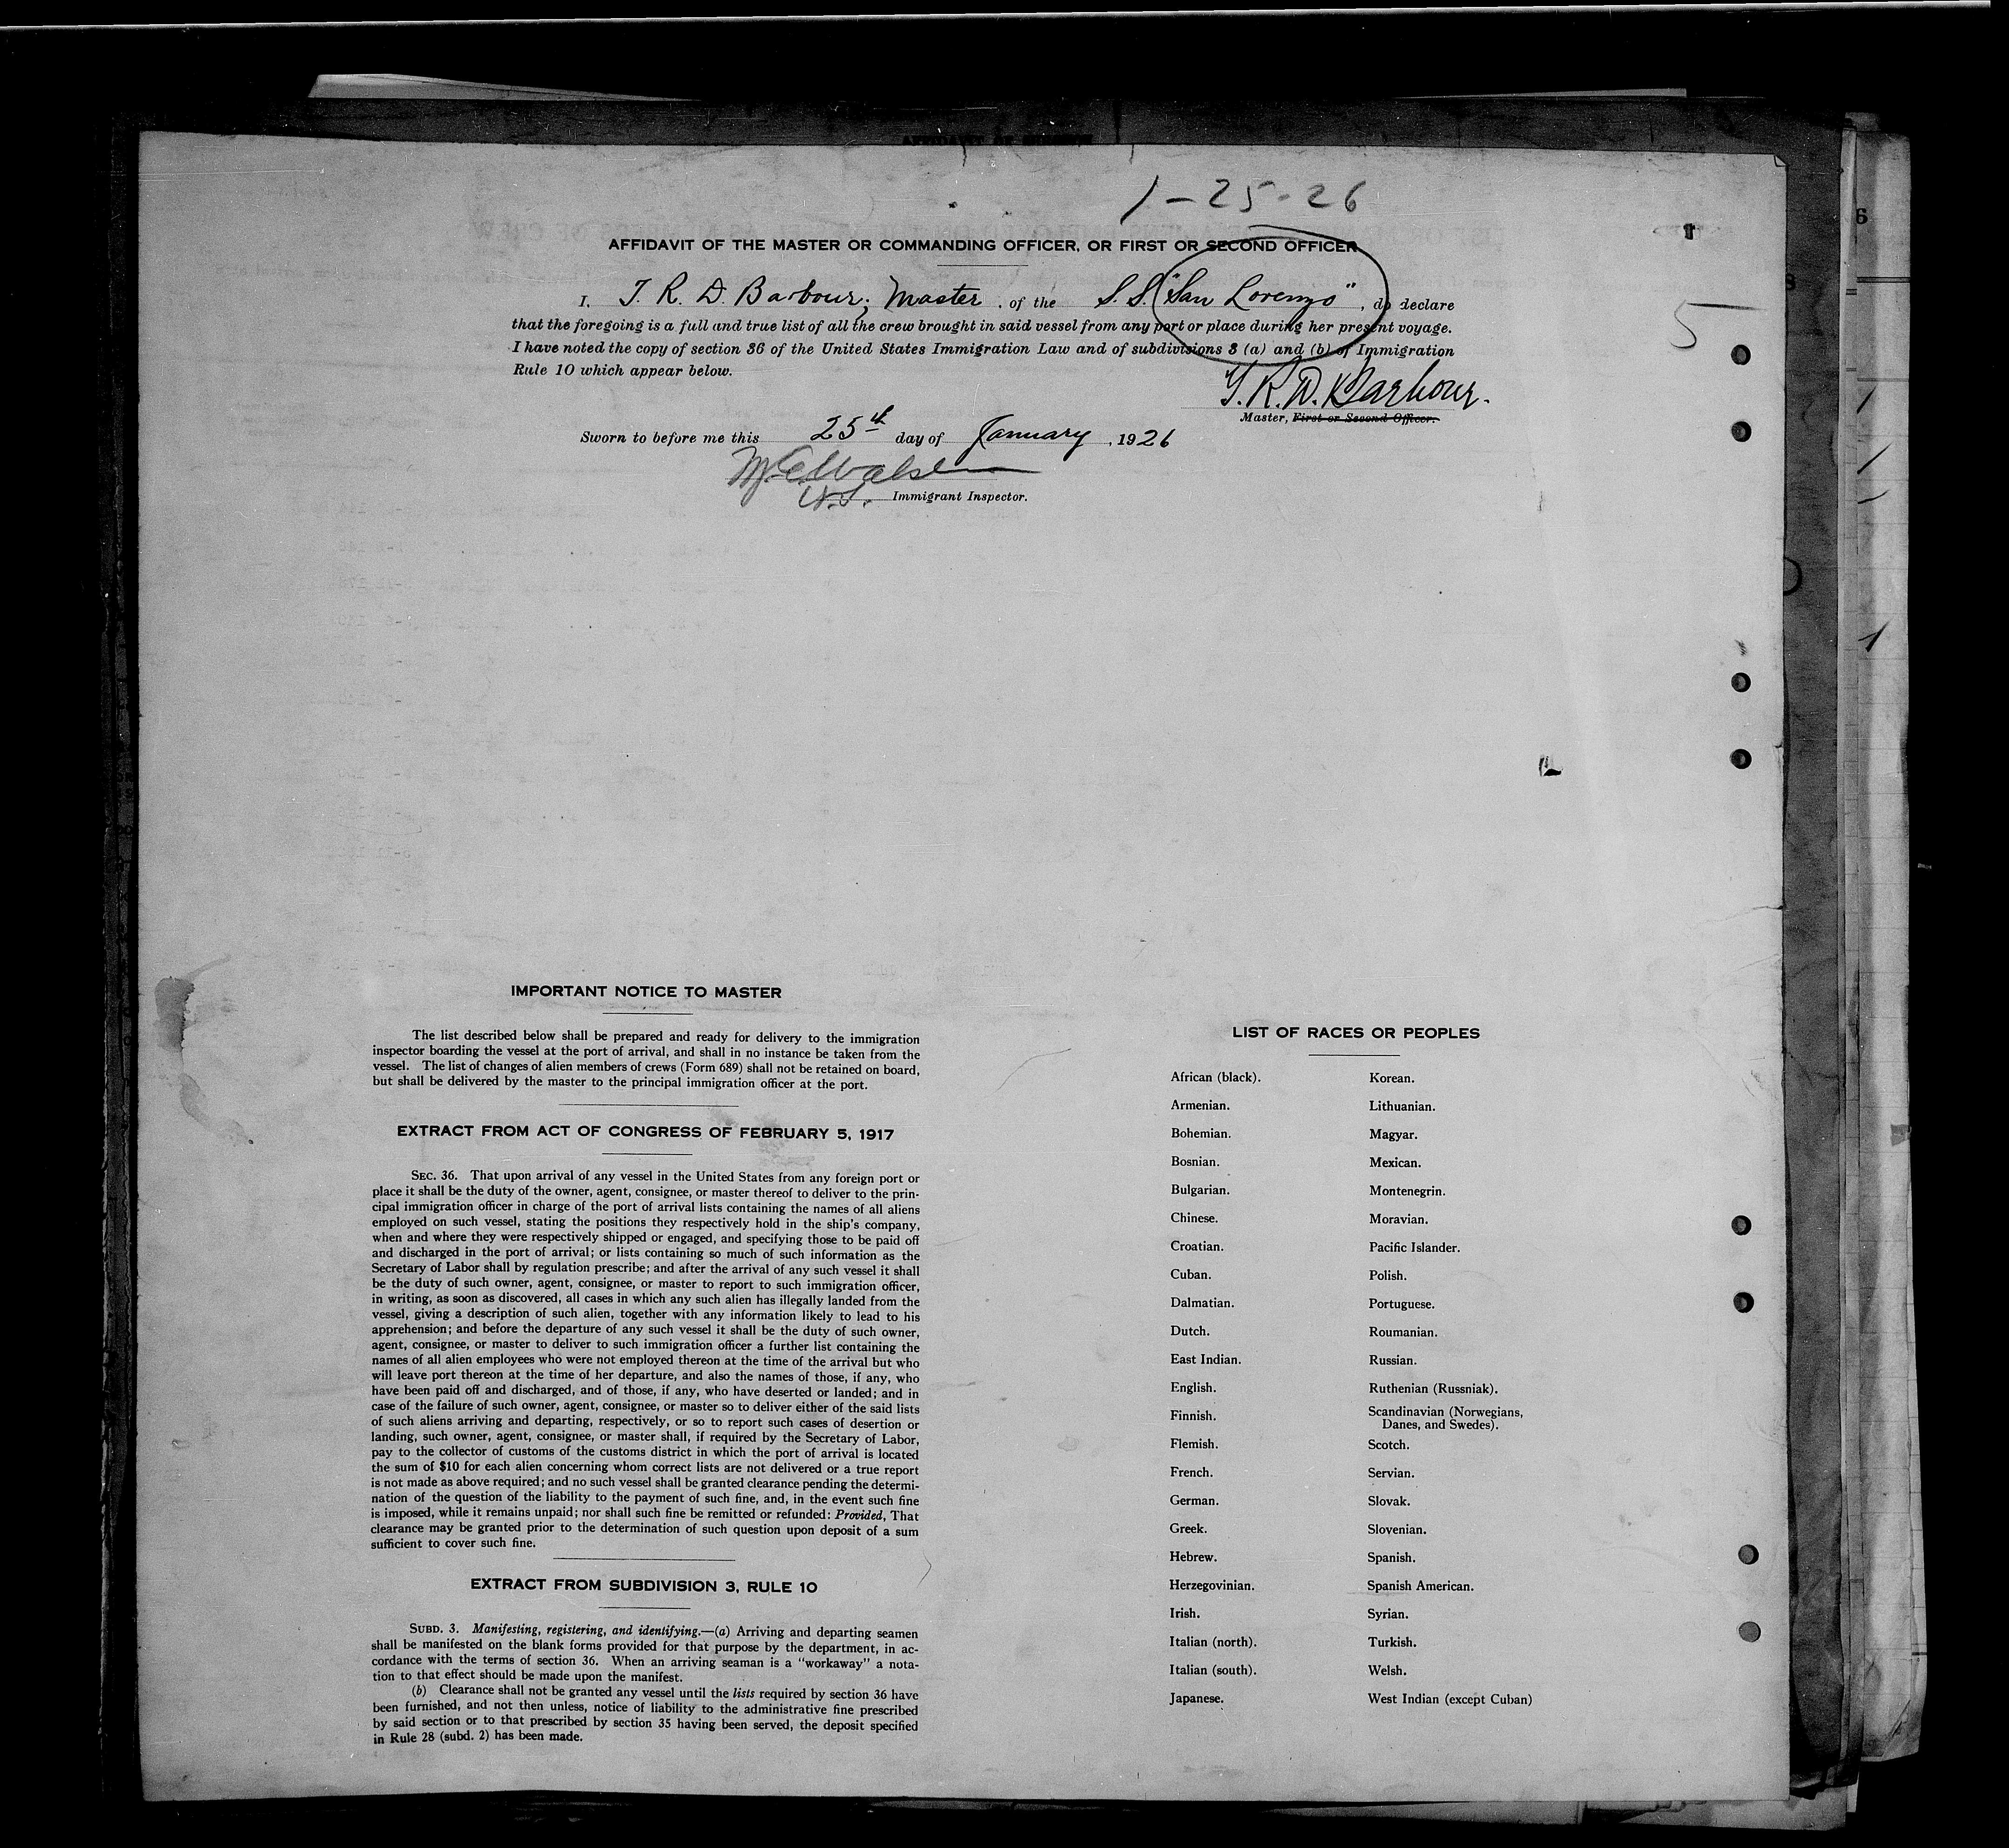 1-25-26
AFFIDAVIT OF THE MASTER OR COMMANDING OFFICER, OR FIRST OR SECOND OFFICER
5
I, T. R. D. Barbour, Master, of the S. S. "San Lorenzo", do declare
that the foregoing is a full and true list of all the crew brought in said vessel from any port or place during her present voyage.
I have noted the copy of section 36 of the United States Immigration Law and of subdivisions 3 (a) and (b) of Immigration
Rule 10 which appear below.
T. R. D. Barbour.
Master, First or Second Officer.
Sworn to before me this 25th day of January, 1926
Immigrant Inspector.
IMPORTANT NOTICE TO MASTER
The list described below shall be prepared and ready for delivery to the immigration
inspector boarding the vessel at the port of arrival, and shall in no instance be taken from the
vessel. The list of changes of alien members of crews (Form 689) shall not be retained on board,
but shall be delivered by the master to the principal immigration officer at the port.
EXTRACT FROM ACT OF CONGRESS OF FEBRUARY 5, 1917
SEC. 36. That upon arrival of any vessel in the United States from any foreign port or
place it shall be the duty of the owner, agent, consignee, or master thereof to deliver to the prin-
cipal immigration officer in charge of the port of arrival lists containing the names of all aliens
employed on such vessel, stating the positions they respectively hold in the ship's company,
when and where they were respectively shipped or engaged, and specifying those to be paid off
and discharged in the port of arrival; or lists containing so much of such information as the
Secretary of Labor shall by regulation prescribe; and after the arrival of any such vessel it shall
be the duty of such owner, agent, consignee, or master to report to such immigration officer,
in writing, as soon as discovered, all cases in which any such alien has illegally landed from the
vessel, giving a description of such alien, together with any information likely to lead to his
apprehension; and before the departure of any such vessel it shall be the duty of such owner,
agent, consignee, or master to deliver to such immigration officer a further list containing the
names of all alien employees who were not employed thereon at the time of the arrival but who
will leave port thereon at the time of her departure, and also the names of those, if any, who
have been paid off and discharged, and of those, if any, who have deserted or landed; and in
case of the failure of such owner, agent, consignee, or master so to deliver either of the said lists
of such aliens arriving and departing, respectively, or so to report such cases of desertion or
landing, such owner, agent, consignee, or master shall, if required by the Secretary of Labor,
pay to the collector of customs of the customs district in which the port of arrival is located
the sum of $10 for each alien concerning whom correct lists are not delivered or a true report
is not made as above required; and no such vessel shall be granted clearance pending the determi-
nation of the question of the liability to the payment of such fine, and, in the event such fine
is imposed, while it remains unpaid; nor shall such fine be remitted or refunded: Provided, That
clearance may be granted prior to the determination of such question upon deposit of a sum
sufficient to cover such fine.
EXTRACT FROM SUBDIVISION 3, RULE 10
SUBD. 3. Manifesting, registering, and identifying.—(a) Arriving and departing seamen
shall be manifested on the blank forms provided for that purpose by the department, in ac-
cordance with the terms of section 36. When an arriving seaman is a "workaway" a nota-
tion to that effect should be made upon the manifest.
(b) Clearance shall not be granted any vessel until the lists required by section 36 have
been furnished, and not then unless, notice of liability to the administrative fine prescribed
by said section or to that prescribed by section 35 having been served, the deposit specified
in Rule 28 (subd. 2) has been made.
LIST OF RACES OR PEOPLES
African (black).
Armenian.
Bohemian.
Bosnian.
Bulgarian.
Chinese.
Croatian.
Cuban.
Dalmatian.
Dutch.
East Indian.
English.
Finnish.
Flemish.
French.
German.
Greek.
Hebrew.
Herzegovinian.
Irish.
Italian (north).
Italian (south).
Japanese.
Korean.
Lithuanian.
Magyar.
Mexican.
Montenegrin.
Moravian.
Pacific Islander.
Polish.
Portuguese.
Roumanian.
Russian.
Ruthenian (Russniak).
Scandinavian (Norwegians,
Danes, and Swedes).
Scotch.
Servian.
Slovak.
Slovenian.
Spanish.
Spanish American.
Syrian.
Turkish.
Welsh.
West Indian (except Cuban)